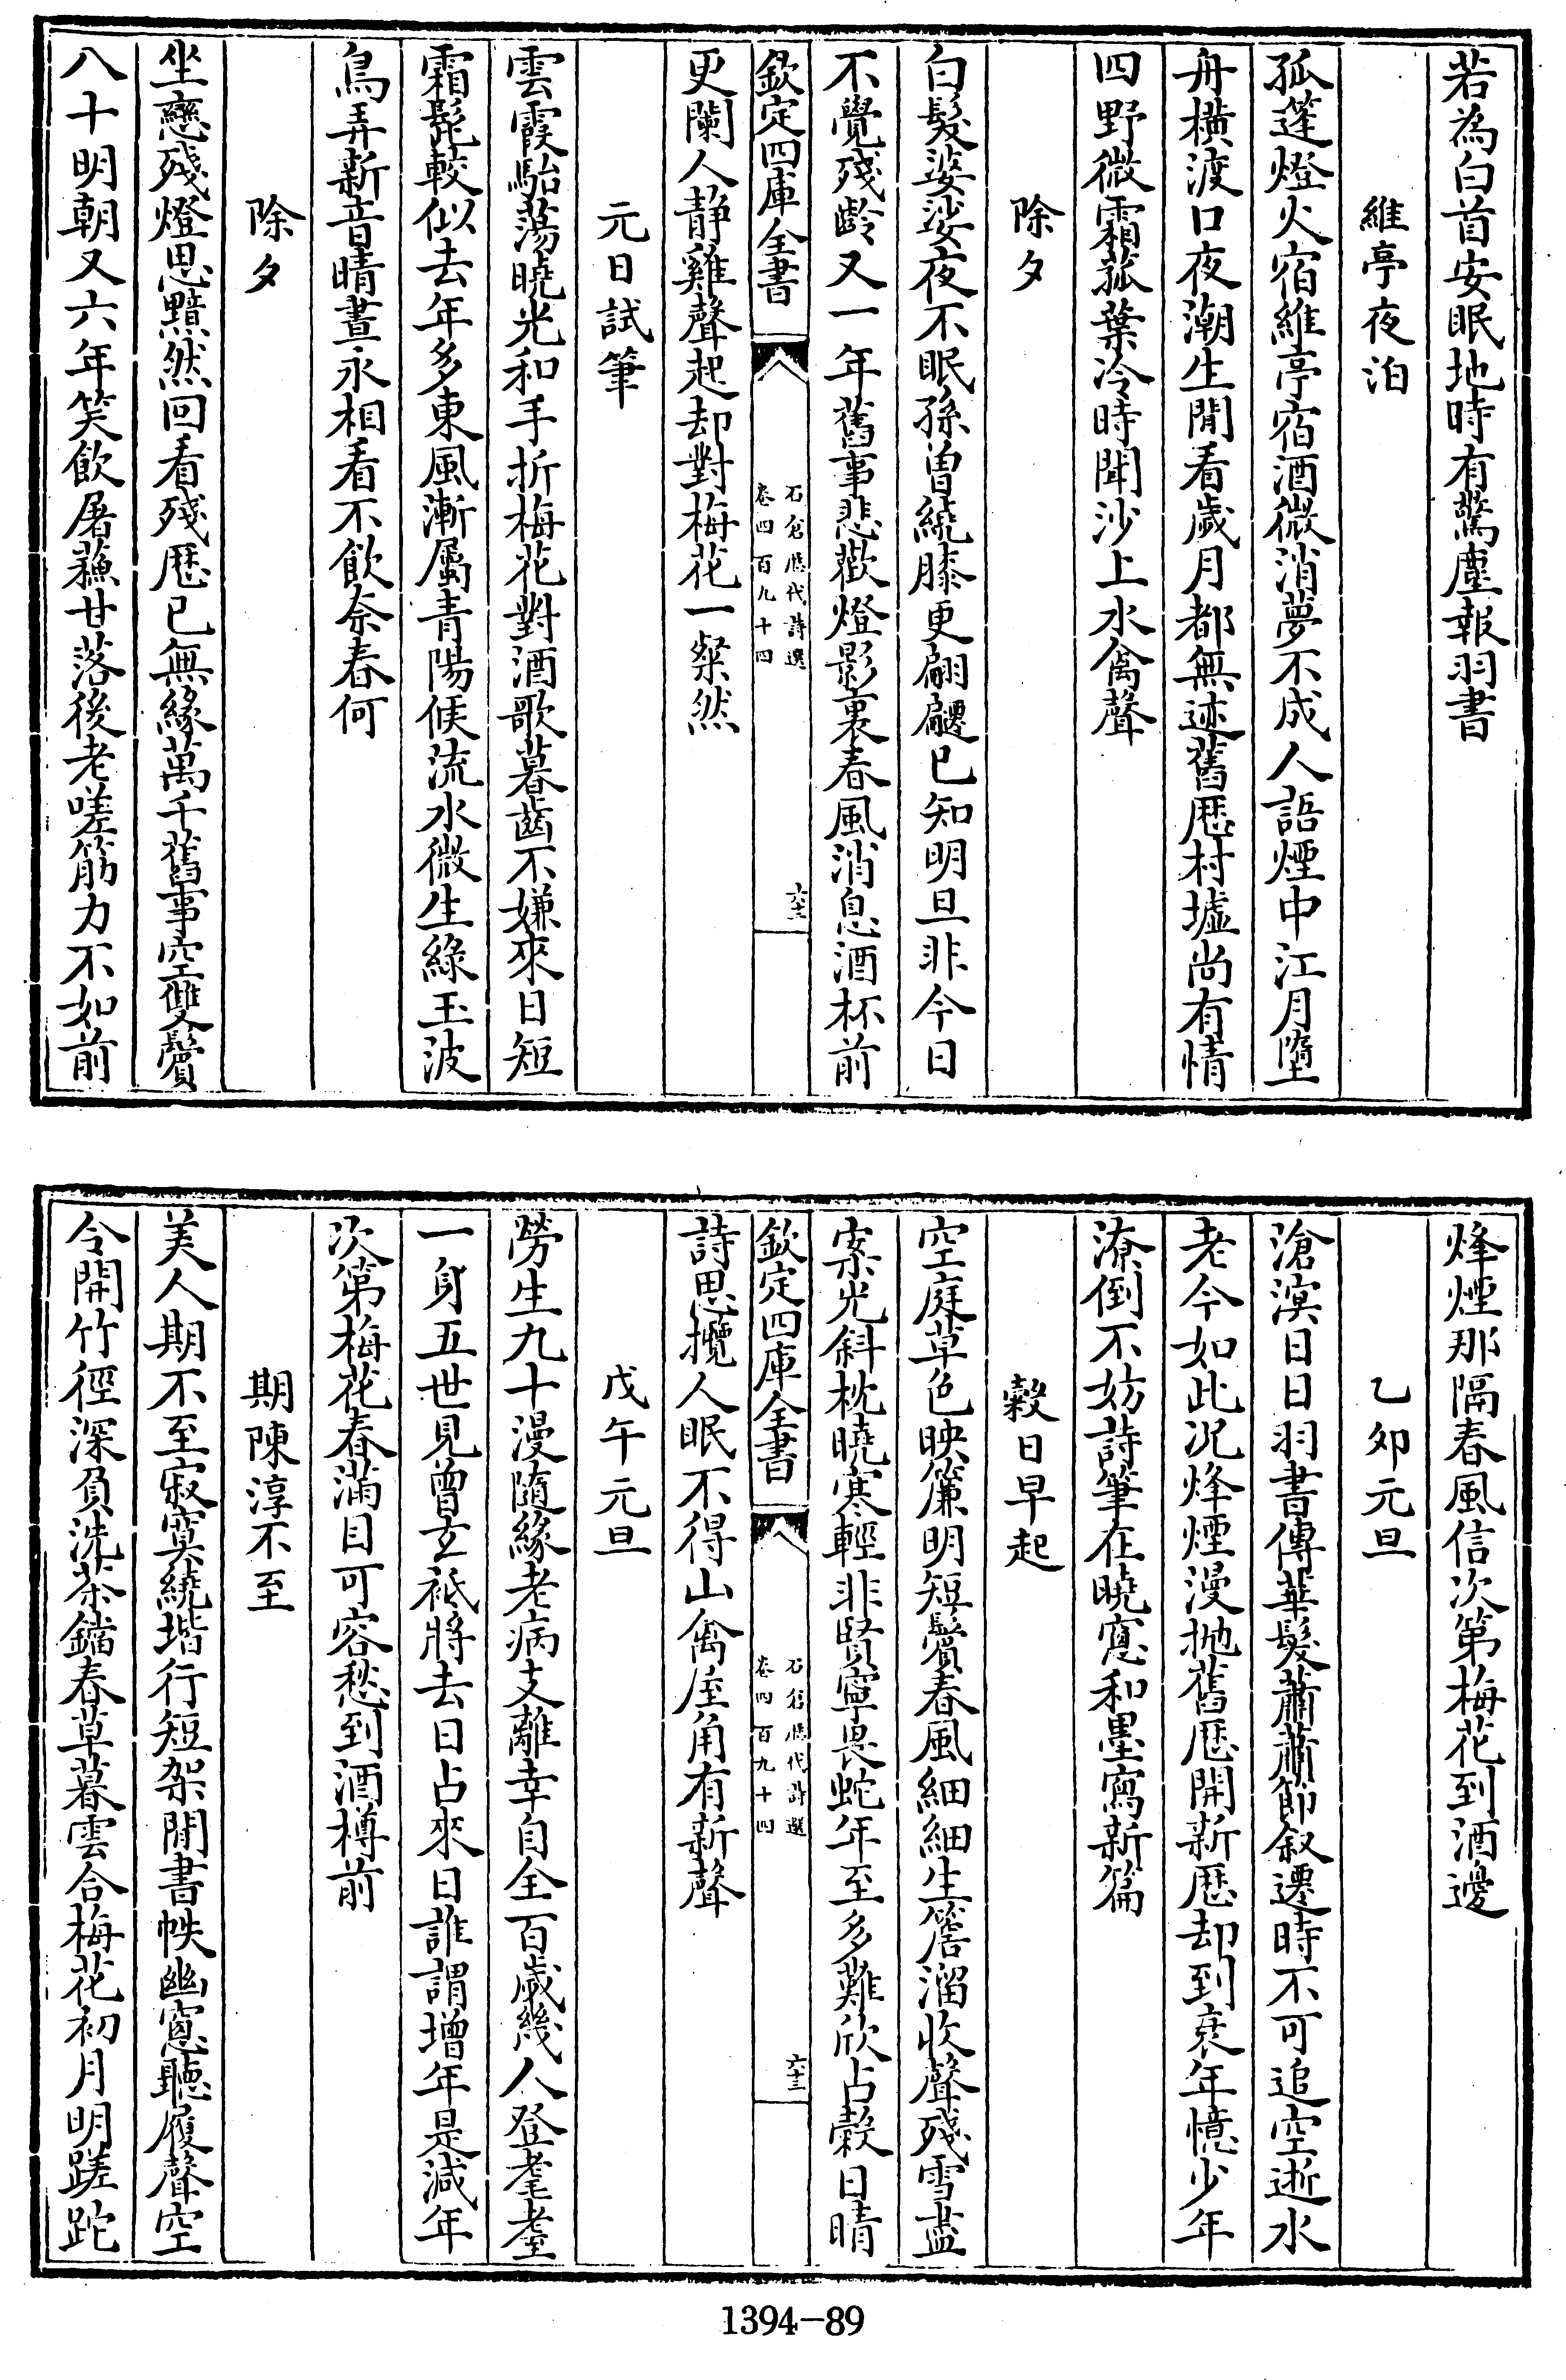 若為白首安眠地時有驚塵報羽書
維亭夜泊
孤篷燈火宿維亭宿酒微消夢不成人語煙中江月墮
舟橫渡口夜潮生閒看歲月都無迹舊厯村墟尚有情
四野微霜菰葉冷時聞沙上水禽聲
除夕
白髮婆娑夜不眠孫曽繞膝更翩躚已知明旦非今日
不覺殘齡又一年舊事悲歡燈影裏春風消息酒杯前
欽定四庫全書
石倉歴代詩選
卷四百九十四
六十三
更闌人静雞聲起却對梅花一粲然
元日試筆
雲霞駘蕩曉光和手折梅花對酒歌暮齒不嫌來日短
霜髭較似去年多東風漸屬青陽候流水微生綠玉波
鳥弄新音晴晝永相看不飲奈春何
除夕
坐戀殘燈思黯然回看殘厯已無緣萬千舊事空雙鬢
八十明朝又六年笑飲屠蘇甘落後老嗟筋力不如前
烽煙那隔春風信次第梅花到酒邊
乙夘元旦
滄溟日日羽書傳華髮蕭蕭節叙遷時不可追空逝水
老今如此況烽煙漫抛舊厯開新厯却到衰年憶少年
潦倒不妨詩筆在曉窻和墨寫新篇
穀日早起
空庭草色映簾明短鬢春風細細生簷溜收聲殘雪盡
案光斜枕曉寒輕非賢寧畏蛇年至多難欣占穀日晴
欽定四庫全書
石倉歴代詩選
卷四百九十四
六十三
詩思攪人眠不得山禽屋角有新聲
戊午元旦
勞生九十漫隨緣老病支離幸自全百歲幾人登耄耋
一身五世見曾玄祗將去日占來日誰謂增年是減年
次第梅花春滿目可容愁到酒樽前
期陳淳不至
美人期不至寂寞繞堦行短架閒書帙幽窻聽履聲空
令開竹徑深負洗茶鐺春草暮雲合梅花初月明蹉跎
1394-89